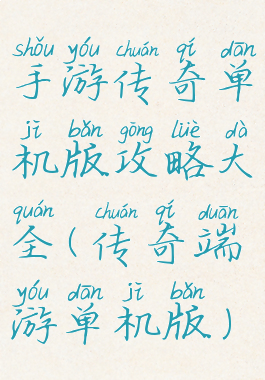 shǒu yóu chuán qí dān
手游传奇单
jī bǎn gōng lüè dà
机版攻略大
quán chuán qí duān
全(传奇端
yóu dān jī bǎn
游单机版)